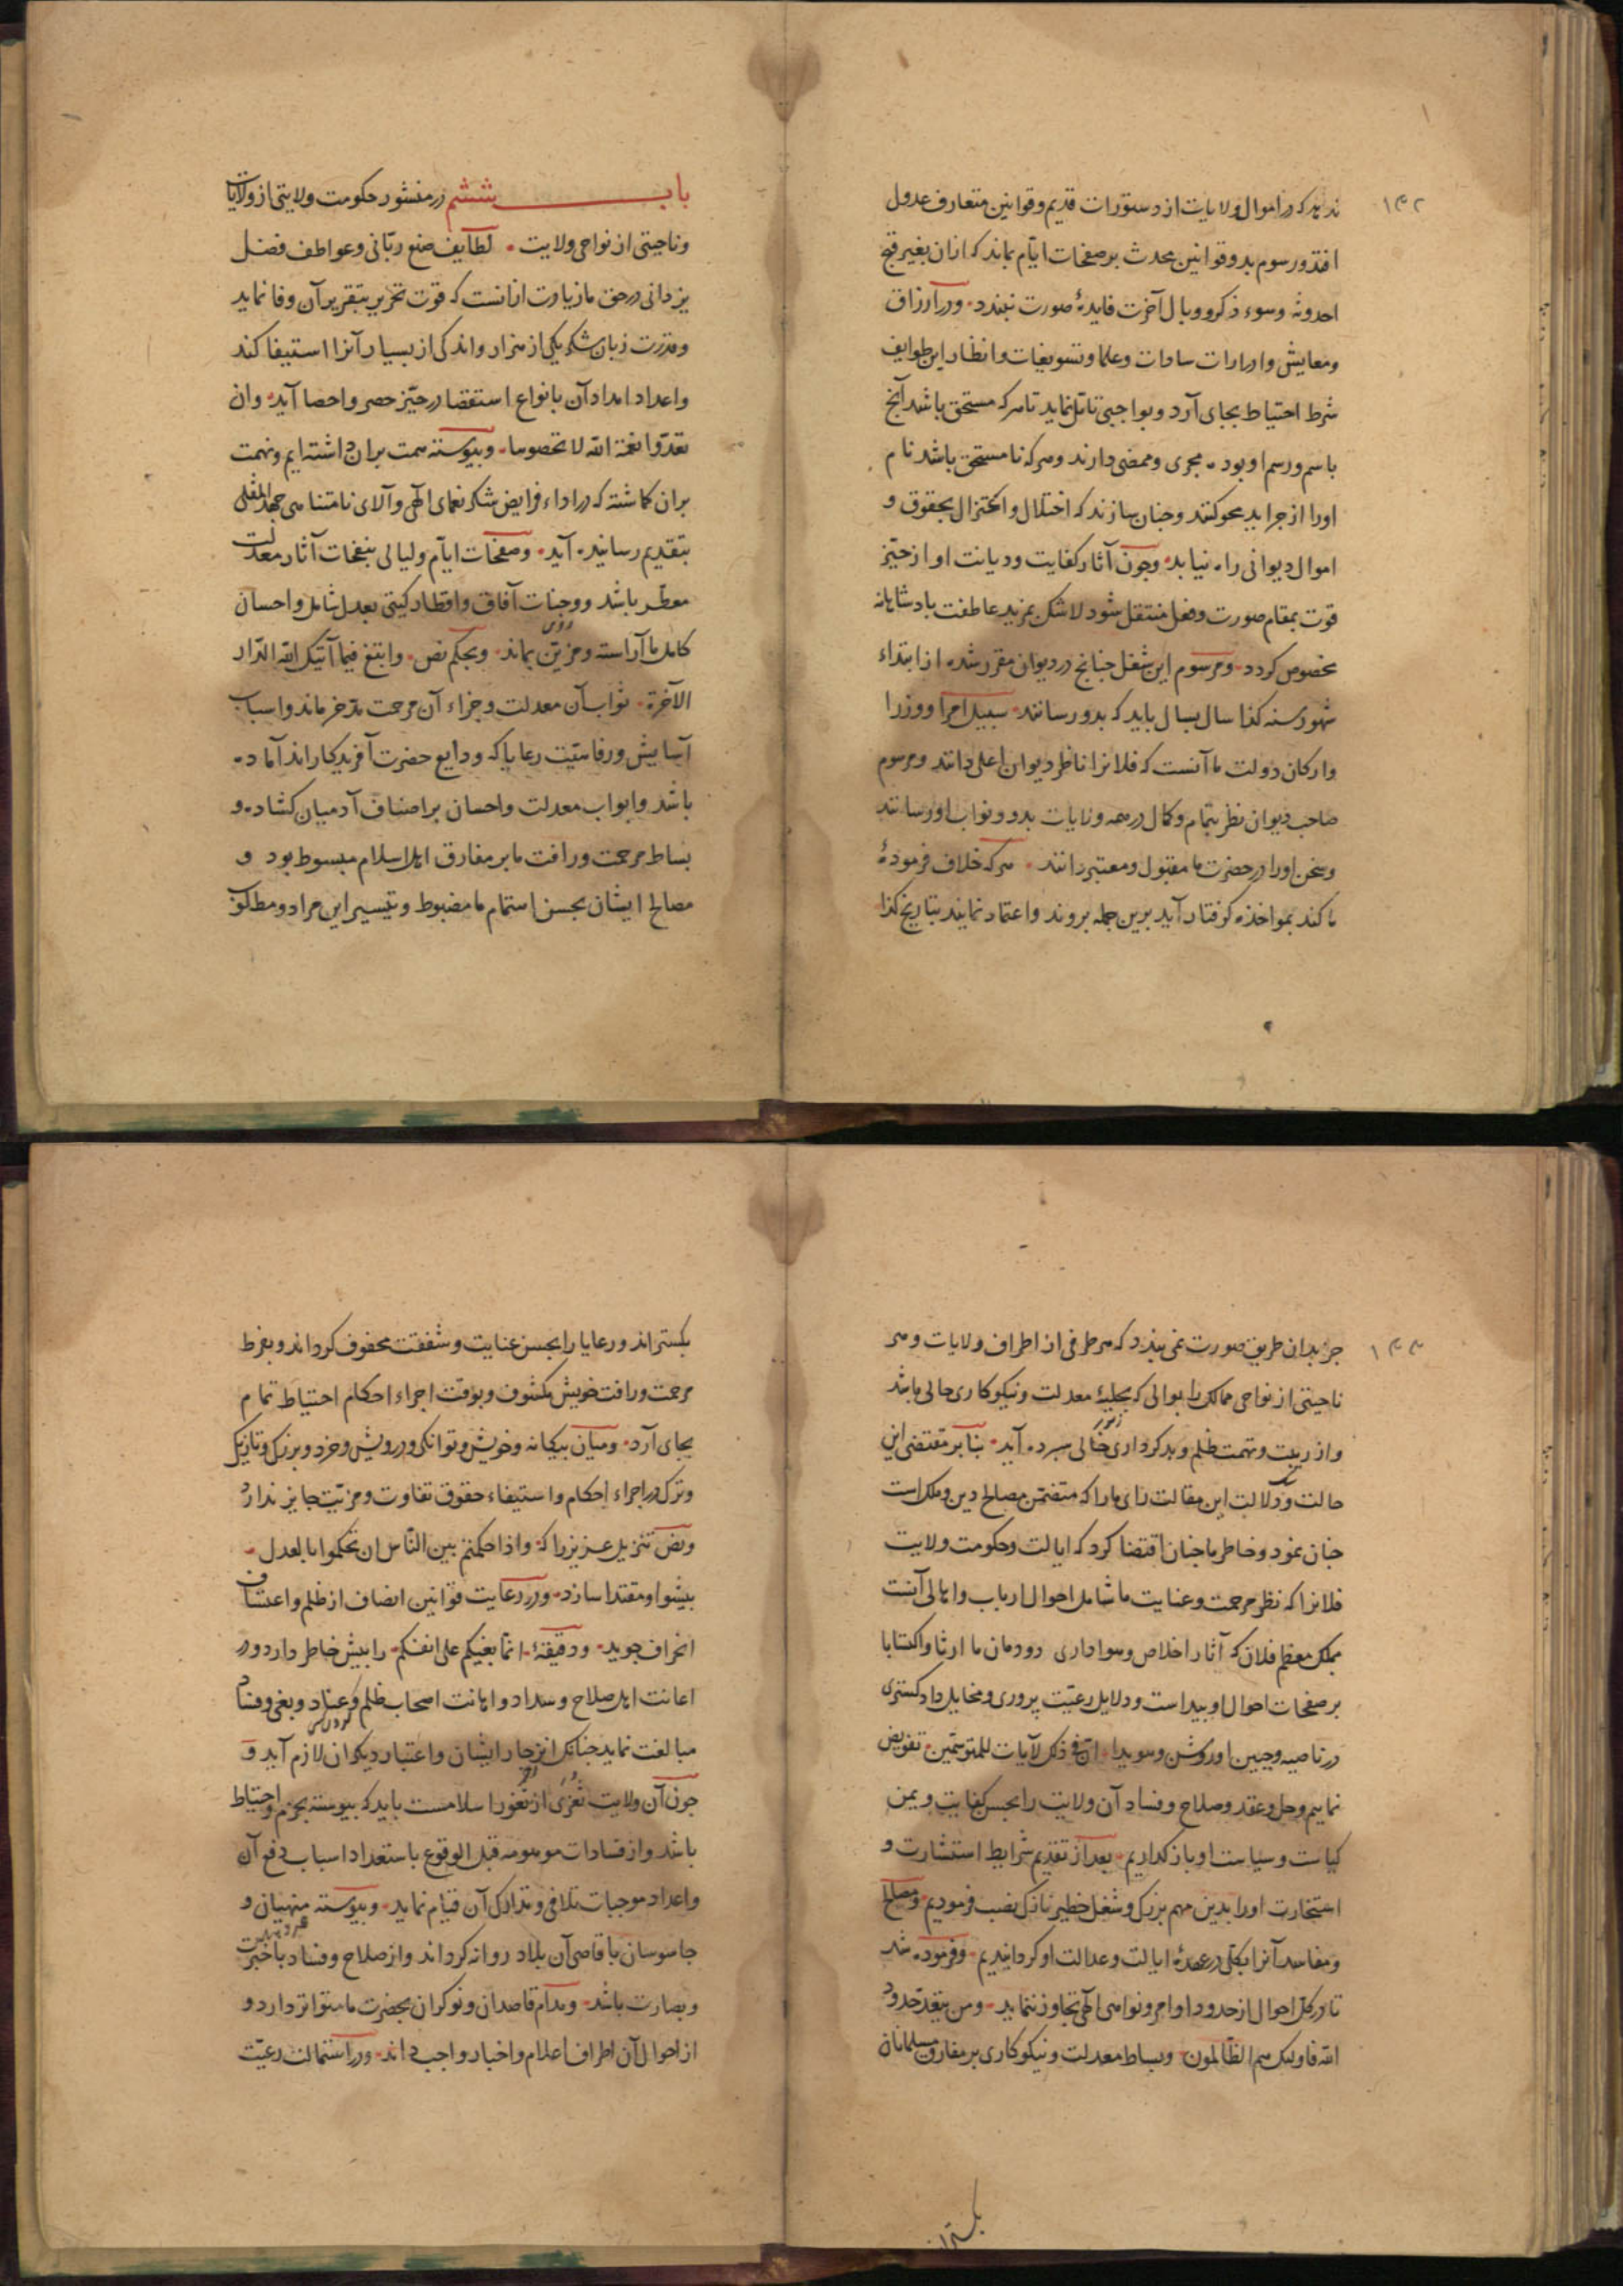 ۱۴۲
ندید که در اموال ولایات از دستورات قدیم و قوانین متعارف عدول
افتد و رسوم بد و قوانین محدث بر صفحات ایام بماند که ازان بغیر قبح
احدوثه و سوء ذکر و وبال آخرت فایدهٔ صورت نبندد. و در ارزاق
و معایش و ادرارات سادات و علما و تسویغات و انظار این طوایف
شرط احتیاط بجای آرد و بواجبی تامل نماید تا هر که مستحق باشد آنچ
باسم و رسم او بوده مجری و ممضی دارند و هر که نامستحق باشد نام
اورا از جراید محو کنند و چنان سازند که اختلال و اختزال بحقوق و
اموال دیوانی راه نیابد. و چون آثار کفایت و دیانت او از حیّز
قوت بمقام صورت و فعل منتقل شود لاشک بمزید عاطفت پادشاهانه
مخصوص گردد. و مرسوم این شغل چنانچ در دیوان مقرر شده از ابتداء
شهور سنه کذا سال بسال باید که بدو رسانند. سبیل امرا و وزرا
و ارکان دولت ما آنست که فلانرا ناظر دیوان اعلی دانند و مرسوم
صاحب دیوان نظر بتمام و کمال در همه ولایات بدو و نواب او رسانند
و سخن اورا در حضرت ما مقبول و معتبر دانند. هر که خلاف فرمودهٔ
ما کند بمواخذه گرفتار آید برین جمله بروند و اعتماد نمایند بتاریخ کذا
باب ششم در منشور حکومت ولایتی از ولایات
و ناحیتی از نواحی ولایت. لطایف صنع ربّانی و عواطف فضل
یزدانی در حق ما زیادت ازانست که قوت تحریر بتقریر آن وفا نماید
و قدرت زبان شکر یکی از هزار و اندکی از بسیار آنرا استیفا کند
و اعداد امداد آن بانواع استقصا در حیّز حصر و احصا آید. و ان
تعدّوا نعمة الله لا تحصوها. و پیوسته همت بران داشته ایم و نهمت
بران گماشته که در اداء فرایض شکر نعمای الهی و آلای نامتناهی جهد المقل
بتقدیم رسانیده آید. و صفحات ایام و لیالی بنفحات آثار معدلت
معطر باشد و وجنات آفاق و اقطار گیتی بعدل شامل و احسان
کامل ما آراسته و مزیّن بماند. و بحکم نص. و ابتغ فیما آتیک الله الدّار
الآخرة. ثواب آن معدلت و جزاء آن مرحمت مدّخر ماند و اسباب
آسایش و رفاهیّت رعایا که ودایع حضرت آفریدگاراند آماده
باشد و ابواب معدلت و احسان بر اصناف آدمیان گشاده و
بساط مرحمت و رافت ما بر مفارق اهل اسلام مبسوط بود و
مصالح ایشان بحسن استمام ما مضبوط و تیسیر این مراد و مطلوب
۱۴۳
جز بدان طریق صورت نمی بندد که هر طرفی از اطراف ولایات و هر
ناحیتی از نواحی ممالک را بوالی که بحلیهٔ معدلت و نیکوکاری حالی باشد
و از ریبت و تهمت ظلم و بدکرداری خالی سپرده آید. بنابر مقتضی این
حالت و دلالت این مقالت رای ما را که متضمّن مصالح دین و ملک است
چنان نمود و خاطر ما چنان اقتضا کرد که ایالت و حکومت ولایت
فلانرا که نظر مرحمت و عنایت ما شامل احوال ارباب و اهالی آنست
بملک معظم فلان که آثار اخلاص و هواداری دودمان ما ارثا و اکتسابا
بر صفحات احوال او پیداست و دلایل رعیّت پروری و مخایل دادگستری
در ناصیه و جبین او روشن و هویدا. انّ فی ذلک لآیات للمتوسّمین. تفویض
نماییم و حل و عقد و صلاح و فساد آن ولایت را بحسن کفایت و یمن
کیاست و سیاست او باز گذاریم. بعد از تقدیم شرایط استشارت و
استخارت اورا بدین مهم بزرگ و شغل خطیر نازک نصب فرمودیم و مصالح
و مفاسد آنرا بکلی در عهدهٔ ایالت و عدالت او گردانیدیم. و فرموده شد
تا در کل احوال از حدود اوامر و نواهی الهی تجاوز ننماید. و من یتعدّ حدود
الله فاولئک هم الظالمون. و بساط معدلت و نیکوکاری بر مفارق مسلمانان
بگستراند
بگستراند و رعایا را بحسن عنایت و شفقت محفوف گرداند و بفرط
مرحمت و رافت خویش مکنوف و بوقت اجراء احکام احتیاط تمام
بجای آرد. و میان بیگانه و خویش و توانگر و درویش و خرد و بزرگ و تازیک
و ترک در اجراء احکام و استیفاء حقوق تفاوت و مزیّت جایز ندارد
و نص تنزیل عزیز را که. و اذا حکمتم بین النّاس ان تحکموا بالعدل.
پیشوا و مقتدا سازد. و در رعایت قوانین انصاف از ظلم و اعتساف
انحراف جوید. و دقیقهٔ. انما بغیکم علی انفسکم. را پیش خاطر دارد و در
اعانت اهل صلاح و سداد و اهانت اصحاب ظلم و عناد و بغی و فساد
مبالغت نماید چنانک انزجار ایشان و اعتبار دیگران لازم آید و
چون آن ولایت ثغری از ثغور اسلامست باید که پیوسته بحزم و احتیاط
باشد و از فسادات موهومه قبل الوقوع باستعداد اسباب دفع آن
و اعداد موجبات تلافی و تدارک آن قیام نماید. و پیوسته منهیان و
جاسوسان باقاصی آن بلاد روانه گرداند و از صلاح و فساد باخبرت
و بصارت باشد. و مدام قاصدان و نوکران بحضرت ما متواتر دارد و
از احوال آن اطراف اعلام و اخبار واجب داند. و در استمالت رعیّت